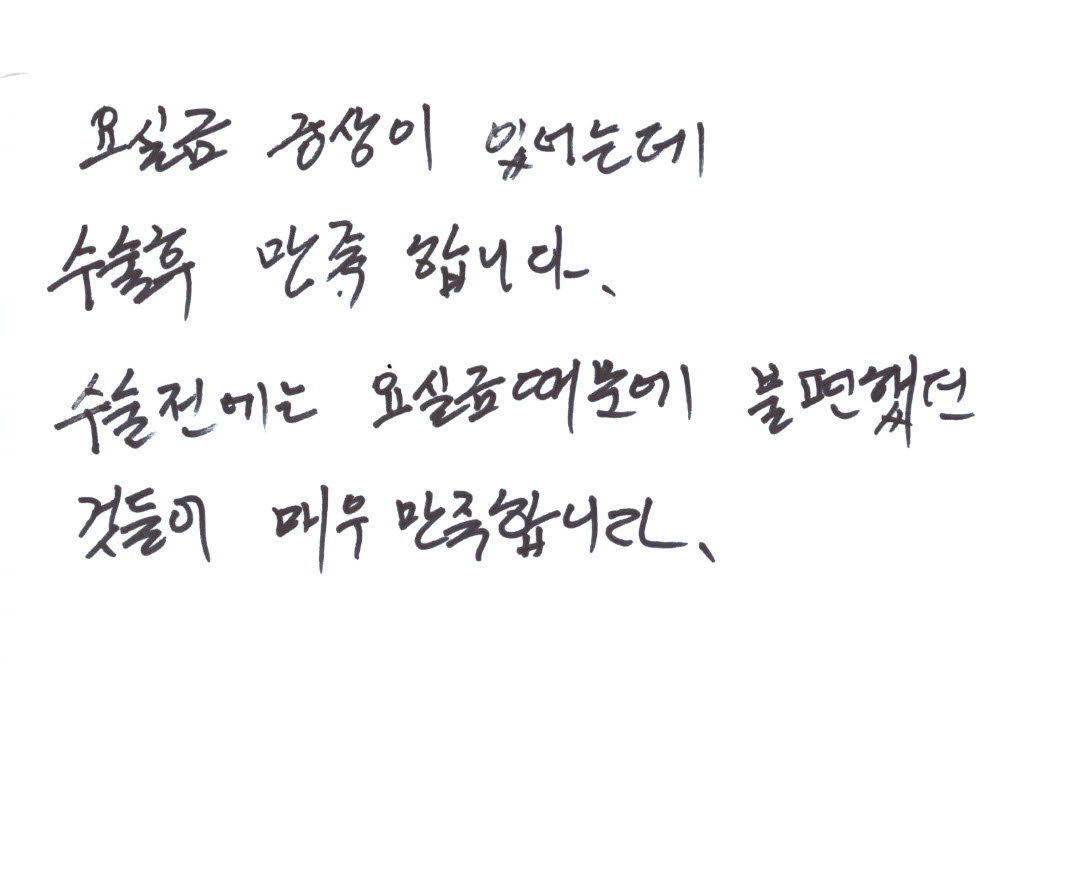 요실금 증상이 있어는데
수술후 만족 합니다.
수술전에는 요실금때문에 불편했던
것들이 매우 만족합니다.